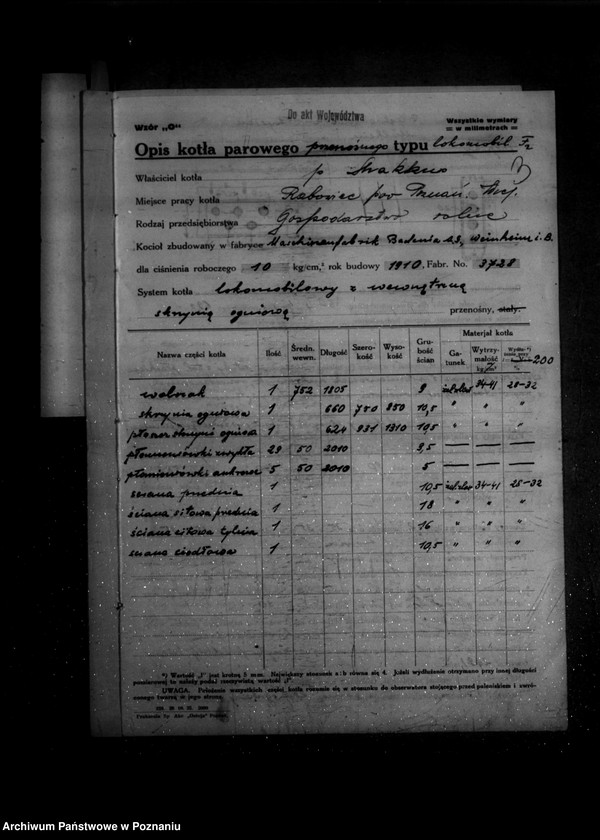 Do akt Województwa
Wzór „G"
Wszystkie wymiary
= w milimetrach =
Opis kotła parowego przenośnego typu lokomobil
Właściciel kotła p.
Miejsce pracy kotła pow. Poznań
Rodzaj przedsiębiorstwa Gospodarstwo rolne
Kocioł zbudowany w fabryce Maschinenfabrik Badenia A.G. Weinheim i. B.
dla ciśnienia roboczego 10 kg/cm,² rok budowy 1910. Fabr. No. 3728
System kotła lokomobilowy z wewnętrzną
skrzynią ogniową przenośny, stały.
Nazwa części kotła Ilość Średn. wewn. Długość Szerokość Wysokość Grubość ścian Materjał kotła
Gatunek Wytrzymałość 200
walczak 1 752 1805 9 34-41 28-32
skrzynia ogniowa 1 660 750 850 10,5 " " "
1 624 931 1310 10,5 " " "
płomieniówki zwykłe 29 50 2010 3,5 — — —
płomieniówki 5 50 2010 5 — — —
ściana przednia 1 10,5 34-41 25-32
ściana sitowa przednia 1 18 " " "
ściana sitowa tylna 1 16 " " "
1 10,5 " " "
*) Wartość „l" jest krótszą Największy stosunek a:b równa się 4. Jeżeli wydłużenie otrzymano przy innej długości
pomiarowej to należy podać rzeczywistą wartość „l".
UWAGA. Położenie wszystkich części kotła rozumie się w stosunku do obserwatora stojącego przed paleniskiem i zwróconego twarzą w jego stronę.
Archiwum Państwowe w Poznaniu